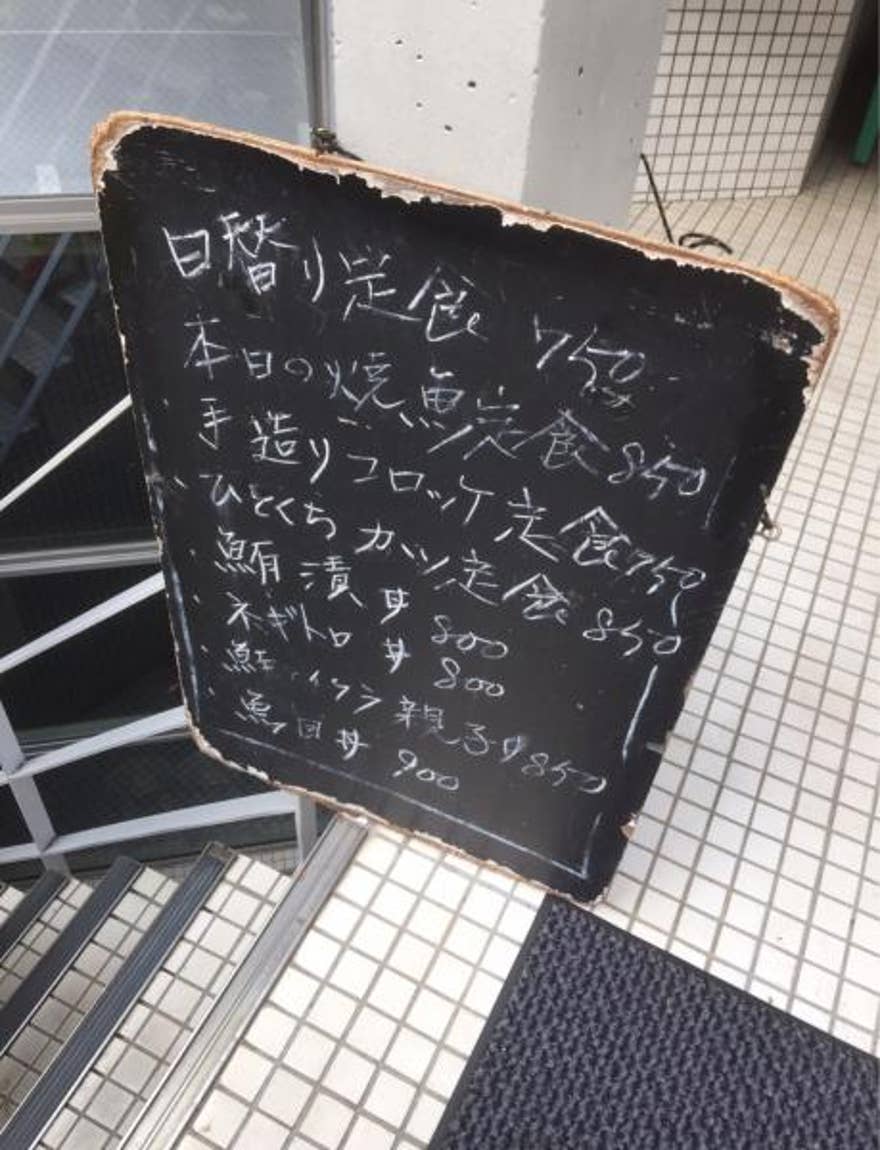 日替り定食 750
本日の焼魚定食 850
手造りコロッケ定食 750
ひとくちカツ定食 850
鮪漬丼 800
ネギトロ丼 800
鮭イクラ親子丼 850
魚河岸丼 900